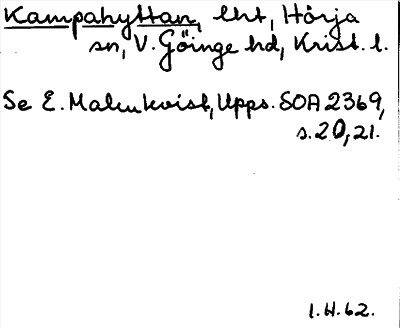 Kampahyttan, lht, Hörja
sn, V. Göinge hd, Krist. l.
Se E. Malmkvist, Upps. SOA 2369,
s. 20, 21.
1.H.62.